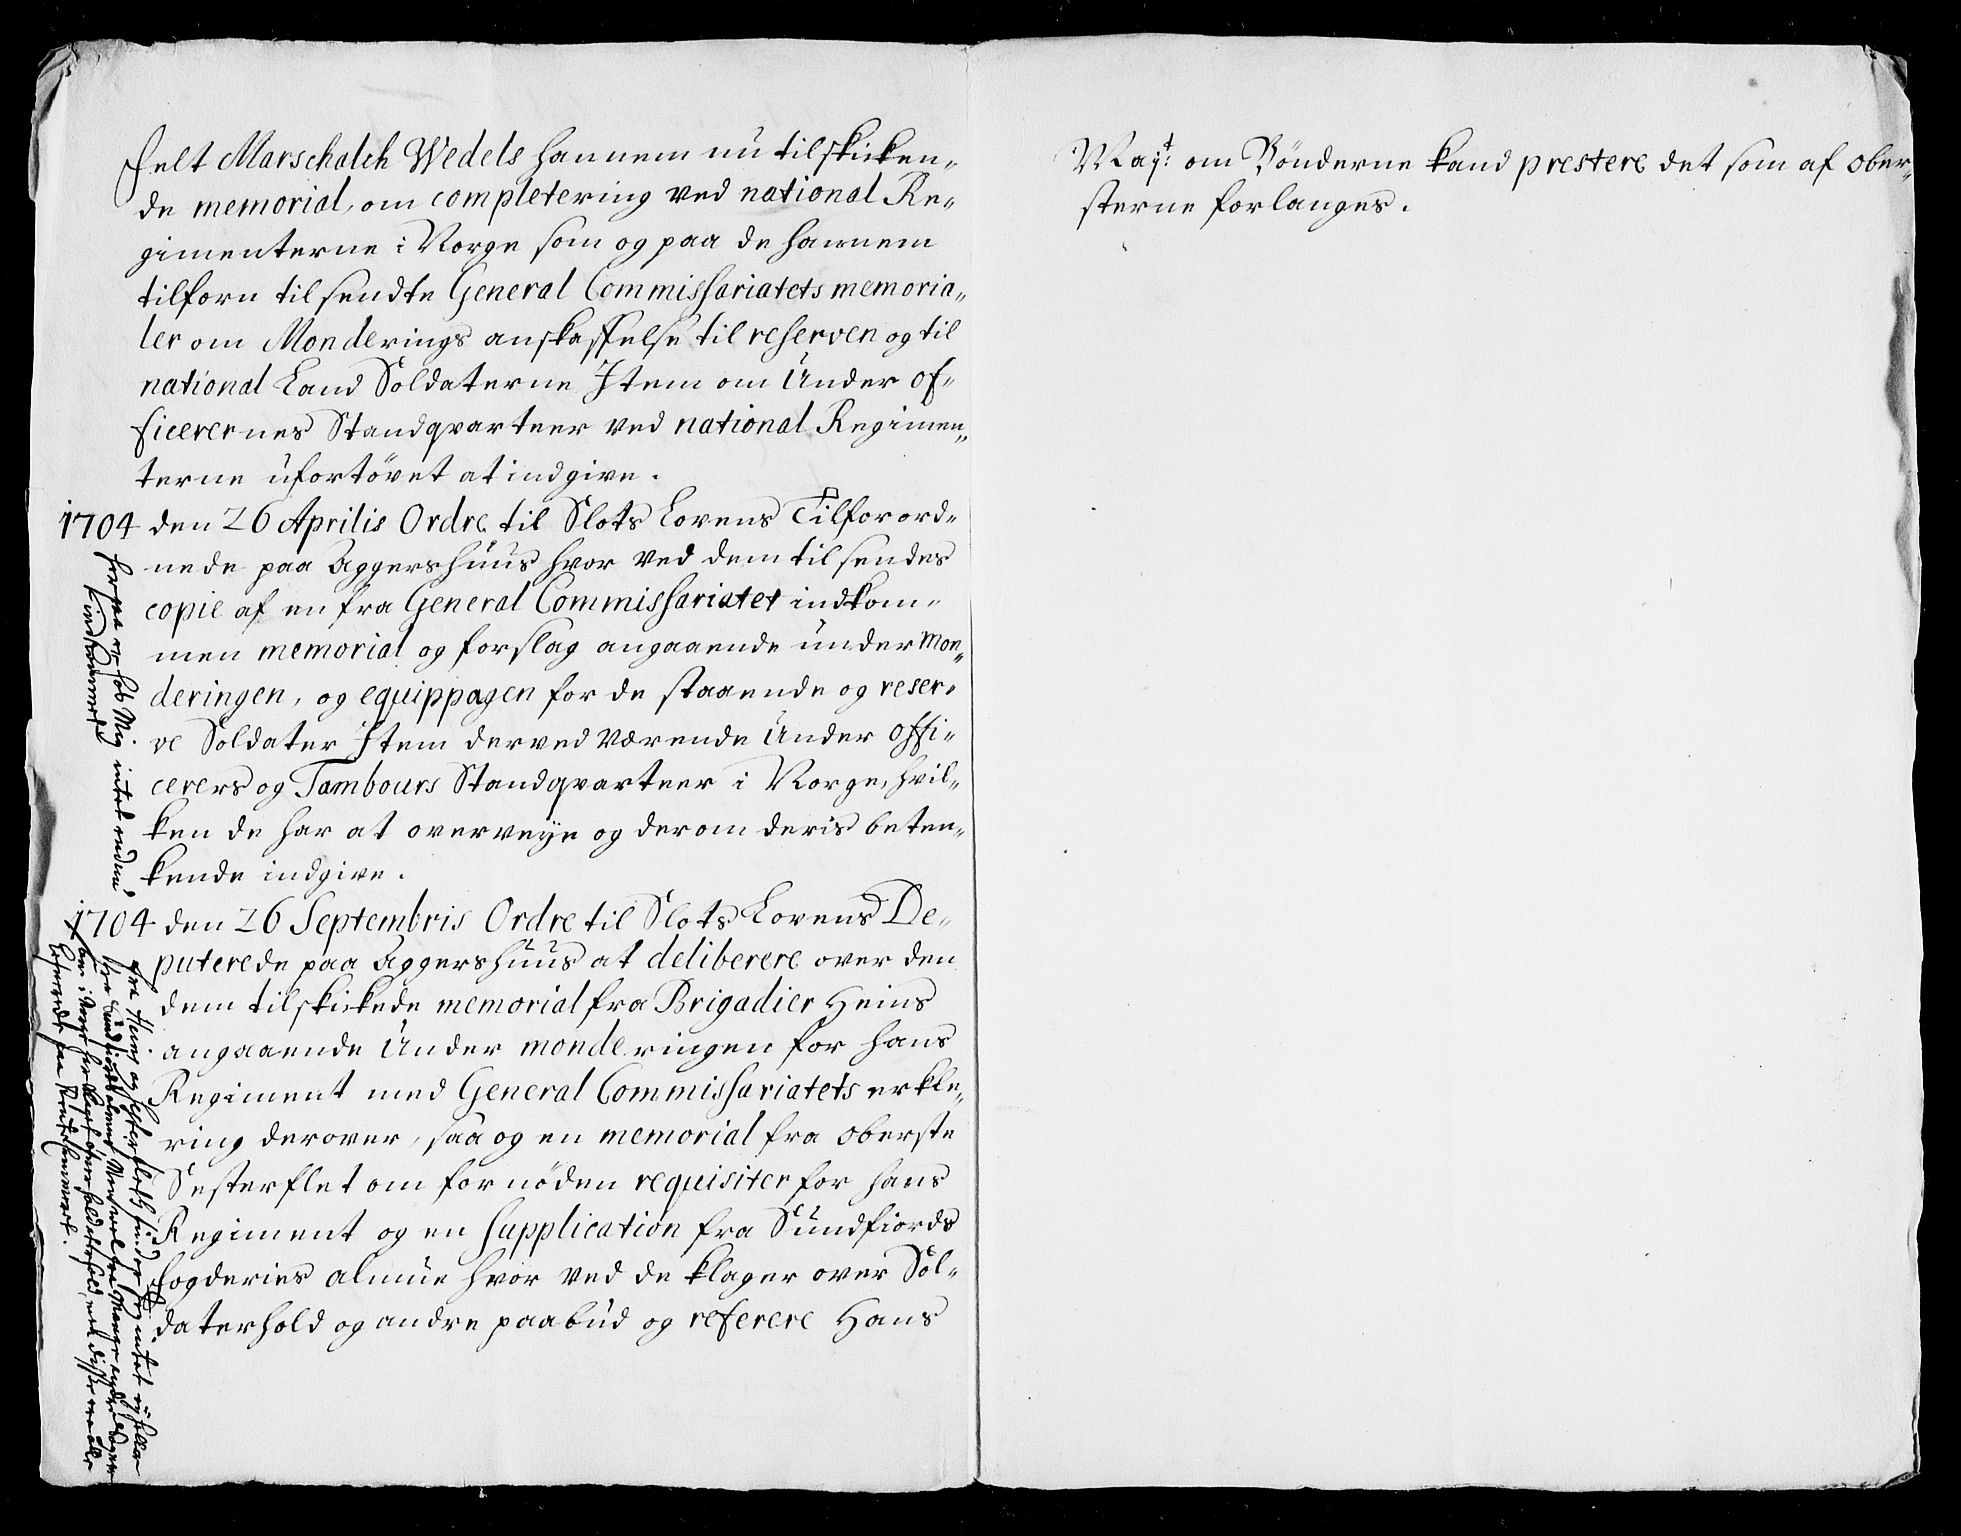 Felt Marschalch Wedels hannem nu tilskicken-
de memorial, om completering ved national Re-
gimenterne i Norge som og paa de hannem
tilforn tilsendte General Commissariatets memoria-
ler om Monderings anskaffelse til reserven og til
national Land Soldaterne Item om Under of-
ficerernes Standqvarteer ved national Regimen-
terne ufortövet at indgive.
1704 den 26 Aprilis Ordre til Slots Lovens Tilforord-
nede paa Aggershuus hvor ved dem tilsendes
copie af en fra General Commissariatet indkom-
men memorial og forslag angaaende under Mon-
deringen, og equippagen for de staaende og reser-
ve Soldater Item derved værende Under Offi-
cerers og Tambours Standqvarteer i Norge, hvil-
ken de har at overveije og derom deris beten-
kende indgive.
herpaa er hos Mig intet endnu
indkommet
1704 den 26 Septembris Ordre til Slots Lovens De-
puterede paa Aggershuus at deliberere over den
dem tilskickede memorial fra Brigadier Heins
angaaende Under monderingen for hans
Regiment med General Commissariatets erkle-
ring derover, saa og en memorial fra Oberste
Sesterflet om fornöden requisiter for hans
Regiment og en Supplication fra Sundfiords
fogderies almue hvor ved de klager over Sol-
daterhold og andre paabud og referere Hans
fra Heins og Sesterfleth finder jeg intet
Soldatehold, med disse
May:t om Bönderne kand prestere det som af Ober-
sterne forlanges.